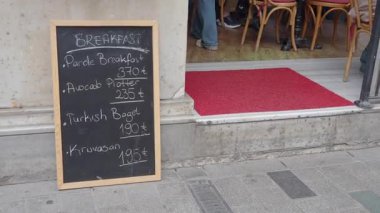 BREAKFAST
• Parde Breakfast
370 ₺
• Avocado Platter
235 ₺
• Turkish Bagel
190 ₺
• Kruvasan
195 ₺